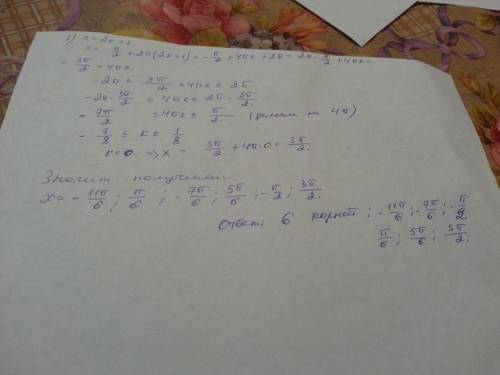 б) n = 2k+1
x = -π/2 + 2π(2k+1) = -π/2 + 4πk + 2π = 2π - π/2 + 4πk =
= 3π/2 + 4πk.
-2π ≤ 3π/2 + 4πk ≤ 2π
-2π - 3π/2 ≤ 4πk ≤ 2π - 3π/2.
-7π/2 ≤ 4πk ≤ π/2. (делим на 4π)
-7/8 ≤ k ≤ 1/8
k=0 ⇒ x = 3π/2 + 4π·0 = 3π/2.
Значит получили:
x = -11π/6; π/6; -7π/6; 5π/6; -π/2; 3π/2.
Ответ: 6 корней; -11π/6; -7π/6; -π/2
π/6; 5π/6; 3π/2.